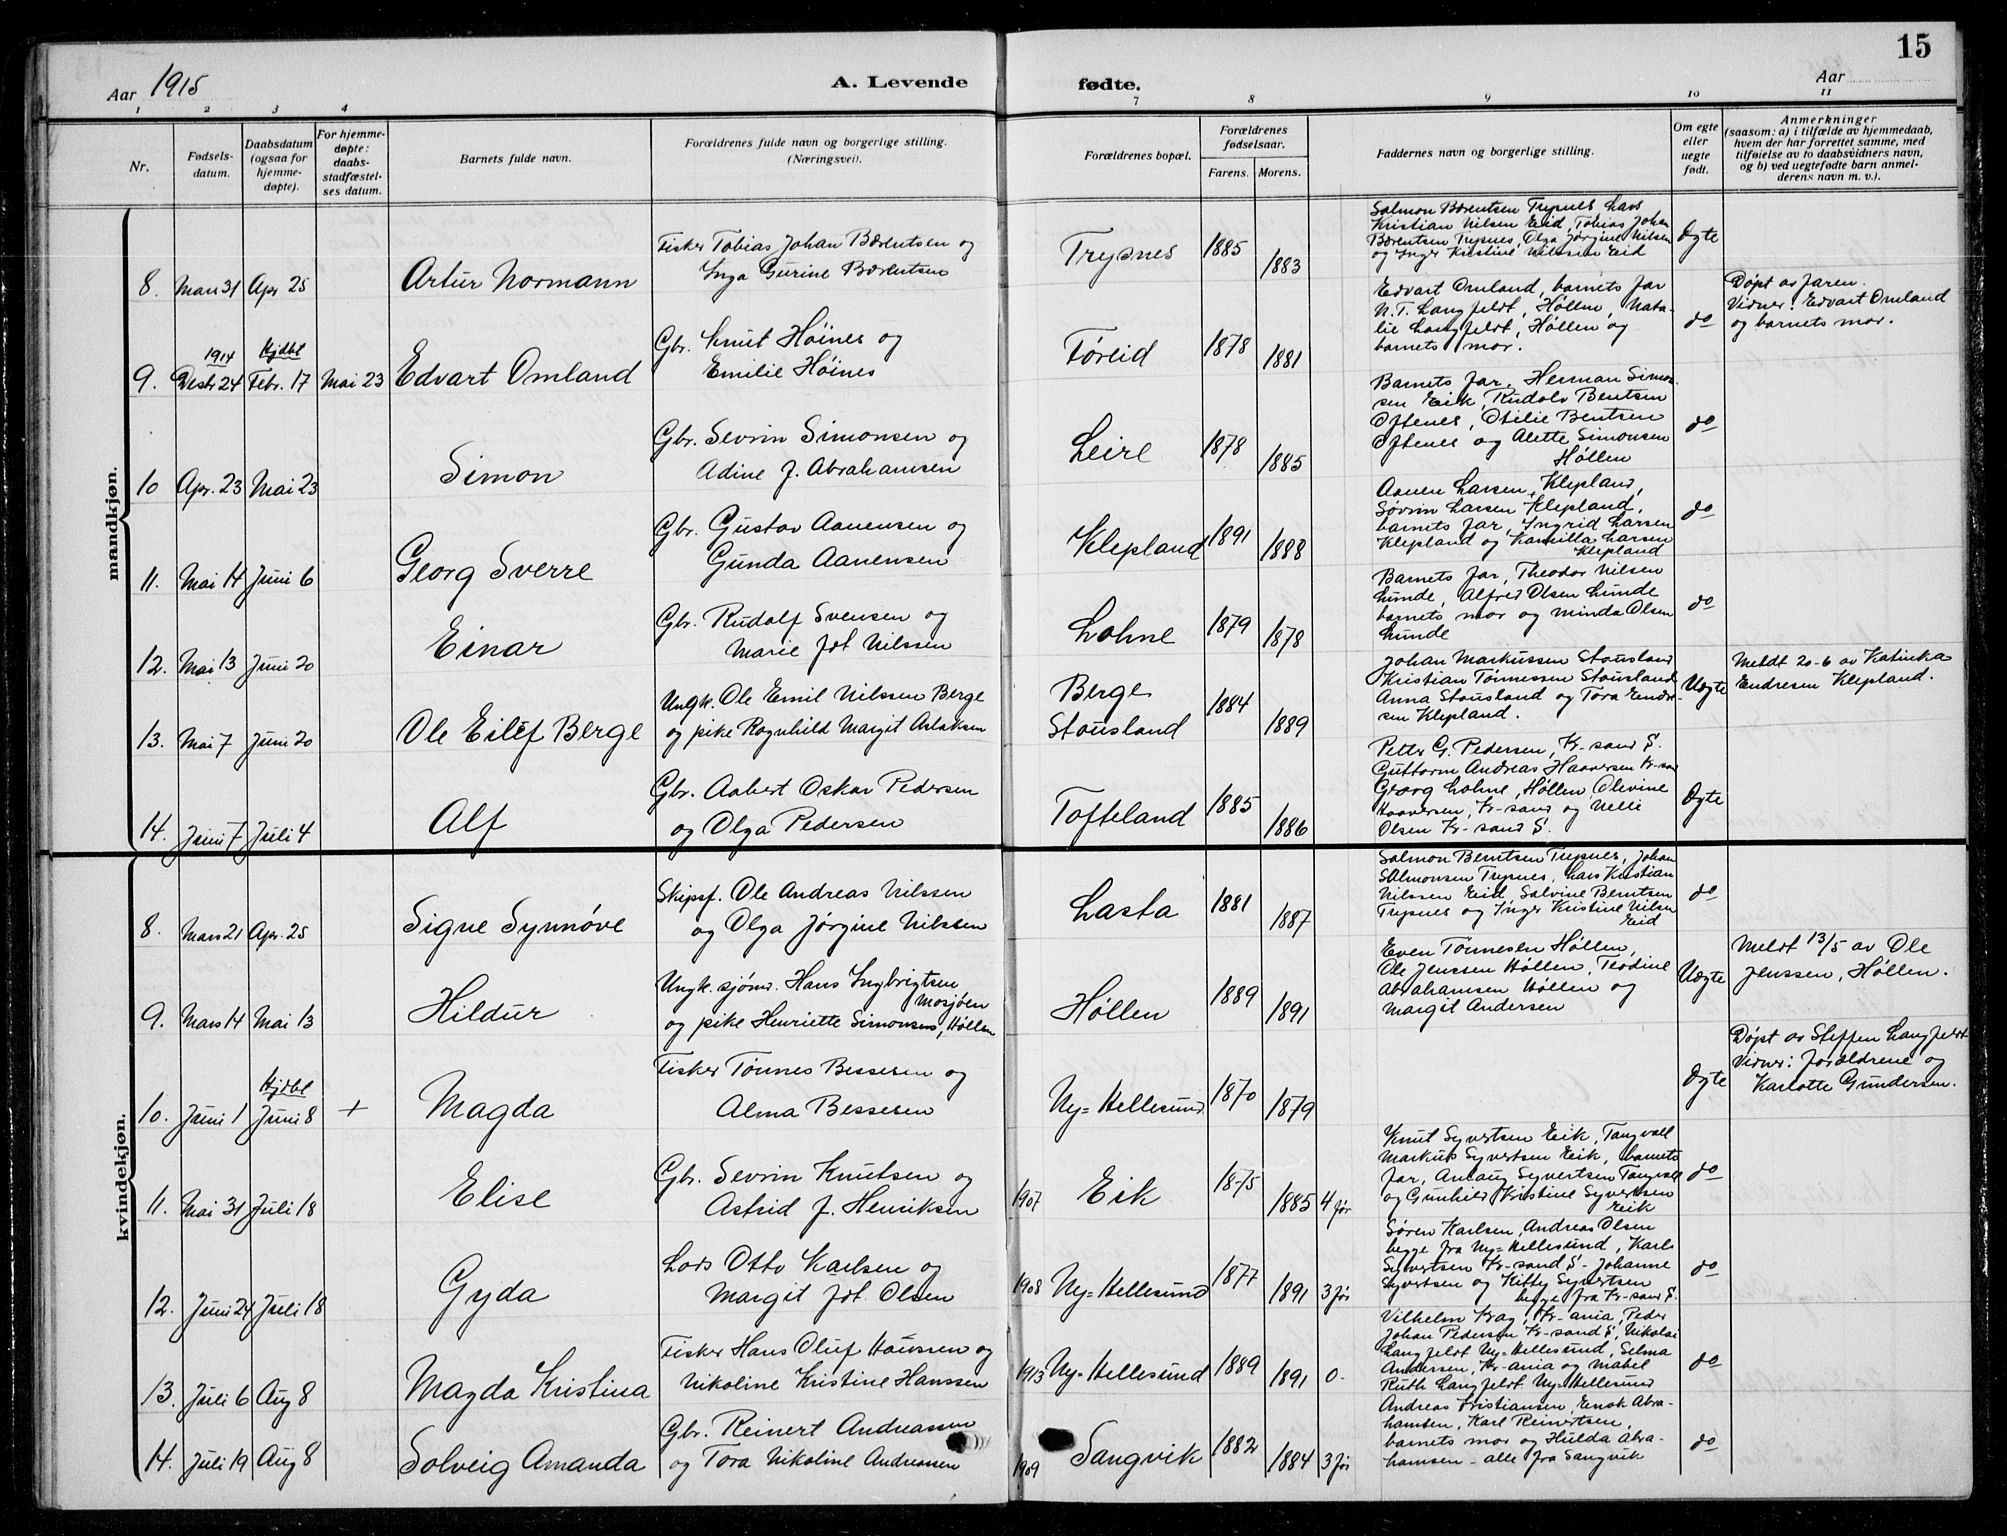 15
Aar 1915
A. Levende fødte.
Aar
1 2 3 4 7 8 9 10 11
Nr.
Fødsels-
datum.
Daabsdatum
(ogsaa for
hjemme-
døpte).
For hjemme-
døpte:
daabs-
stadfæstel-
ses datum.
Barnets fulde navn.
Forældrenes fulde navn og borgerlige stilling.
(Næringsvei).
Forældrenes bopæl.
Forældrenes
fødselsaar.
Farens. Morens.
Faddernes navn og borgerlige stilling.
Om egte
eller
uegte
født.
Anmerkninger
(saasom: a) i tilfælde av hjemmedaab,
hvem der har forrettet samme, med
tilføielse av to daabsvidners navn,
og b) ved uegtefødte barn anmel-
derens navn m. v.).
mandkjøn.
8. Mars 31 Apr 25 Artur Normann
Fisker Tobias Johan Bærentsen og
Inga Gurine Bærentsen
Trysnes 1885 1883
Salmon Bærentsen Trysnes Lars
Kristian Nilsen Eid, Tobias Johan
Bærentsen Trysnes, Olga Jørgine Nilsen
og Inger Kristine Nilssen Eid
Ægte
9. 1914 Desbr 24 Hjdbt Febr. 17 Mai 23 Edvart Omland
Gbr. Knut Höines og
Emilie Höines
Föreid 1878 1881
Edvart Omland, barnets far
N. T. Langfeldt, Høllen, Nata-
lie Langfeldt, Høllen og
barnets mor.
do
Døpt av faren.
Vidner: Edvart Omland
og barnets mor.
10 Apr. 23 Mai 23 Simon
Gbr. Sevrin Simonsen og
Adine f. Abrahamsen
Leire 1878 1885
Barnets far, Herman Simon-
sen Eik, Rudolv Bentsen
Oftenes, Otilie Bentsen
Oftenes og Alette Simonsen
Høllen
do
11. Mai 14 Juni 6 Georg Sverre
Gbr. Gustav Aanensen og
Gunda Aanensen
Klepland 1891 1888
Aanen Larsen, Klepland,
Søvrin Larsen Klepland,
barnets far, Ingrid Larsen
Klepland og Kamilla Larsen
Klepland
do
12. Mai 13 Juni 20 Einar
Gbr. Rudolf Svensen og
Marie fdt Nilssen
Lohne 1879 1878
Barnets far, Theodor Nilsen
Lunde, Alfred Olsen Lunde
barnets mor og Minda Olsen
Lunde
do
13. Mai 7 Juni 20 Ole Eilef Berge
Ungk. Ole Emil Nilssen Berge
og pike Ragnhild Margit Aslaksen
Berge
Stousland
1884 1889
Johan Markussen Stousland
Kristian Tönnessen Stousland
Anna Stousland og Tora Endre-
sen Klepland.
Uægte
Meldt 20-6 av Katinka
Endresen Klepland.
14. Juni 7 Juli 4 Alf
Gbr. Aabert Oskar Pedersen
og Olga Pedersen
Tofteland 1885 1886
Petter G. Pedersen, Kr-sand S.
Guttorm Andreas Haaversen Kr-sa
Georg Lohne, Høllen, Olevine
Haaversen, Kr-sand og Nelli
Olsen Kr-sand S.
Ægte
kvindekjøn.
8. Mars 21 Apr. 25 Signe Synnöve
Skipsf. Ole Andreas Nilssen
og Olga Jørgine Nilssen
Lasta 1881 1887
Salmon Berntsen Trysnes, Johan
Salmonsen Trysnes, Lars Kristian
Nilssen Eid, Salvine Berntsen
Trysnes og Inger Kristine Nilsen
Eid
do
9. Mars 14 Mai 13 Hildur
Ungk. sjöm. Hans Ingbrigtsen
Mosjöen
og pike Henriette Simonsens, Høllen
Høllen 1889 1891
Even Tönnesen Høllen,
Ole Jenssen Høllen, Teodine
Abrahamsen Høllen og
Margit Andersen
Uægte
Meldt 13/5 av Ole
Jenssen, Høllen.
10. Juni 1 Hjdbt Juni 8 + Magda
Fisker Tönnes Bessesen og
Alma Bessesen
Ny=Hellesund 1870 1879
Ægte
Døpt av Steffen Langfeldt
Vidner: foræeldrene og
Karlotte Gundersen.
11. Mai 31 Juli 18 Elise
Gbr. Sevrin Knutsen og
Astrid f. Henriksen
1907 Eik 1875 1885 4 før
Knut Syvertsen Eik, Tangvall
Markus Syvertsen Eik, barnets
far, Anlaug Syvertsen Tangvall
og Gunhild Kristine Syvertsen
Eik
do
12. Juni 24 Juli 18 Gyda
Lods Otto Karlsen og
Margit fdt. Olsen
1908 Ny=Hellesund 1877 1891 3 før
Søren Karlsen, Andreas Olsen
begge fra Ny=Hellesund, Karl
Syvertsen Kr-sand S- Johanne
Syvertsen og Kitty Syvertsen
begge fra Kr-sand S.
do
13. Juli 6 Aug 8 Magda Kristina
Fisker Hans Oluf Hanssen og
Nikoline Kristine Hanssen
1913 Ny=Hellesund 1889 1891 0-
Vilhelm Krag, Kr-ania, Peder
Johan Pedersen Kr-sand S, Nikolai
Langfeldt Ny=Hellesund, Selma
Andersen, Kr-ania og Mabel
Ruth Langfeldt Ny=Hellesund
do
14. Juli 19 Aug 8 Solveig Amanda
Gbr. Reinert Andreassen
og Tora Nikoline Andreassen
1909 Sangvik 1882 1884 3 før
Andreas Kristiansen, Enok Abra-
hamsen, Karl Reinertsen,
barnets mor og Hulda Abra-
hamsen - alle fra Sangvik
do